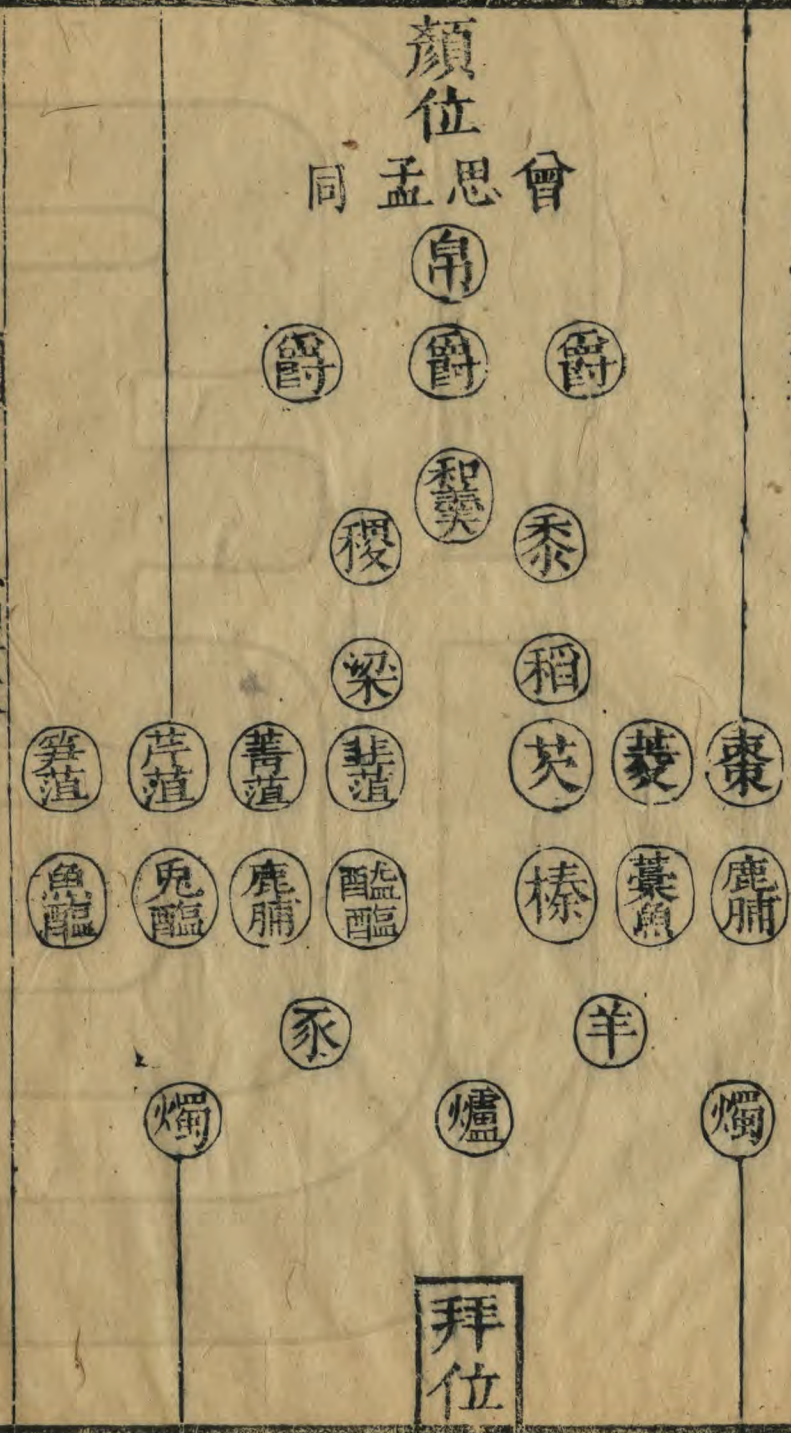 顏位
曾思孟同
帛
爵 爵 爵
和羹
黍 稷
稻 梁
棗 菱 芡 韭菹 菁菹 芹菹 笋菹
鹿脯 藁魚 榛 醓醢 鹿脯 兎醢 魚醢
羊 豕
燭 爐 燭
拜位